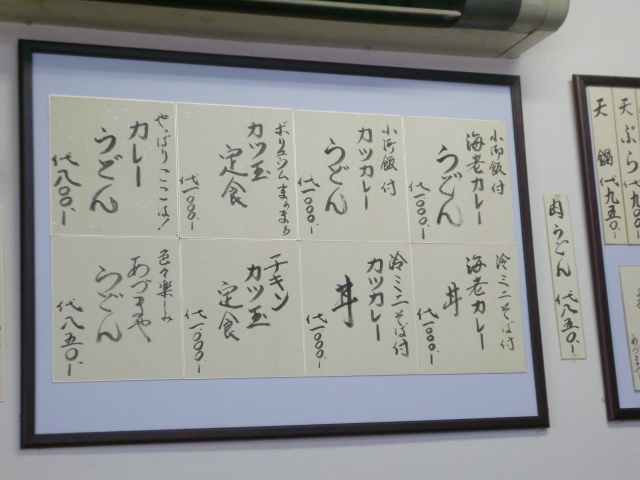 小御飯付
海老カレー
うどん
代一、〇〇〇、ー
小御飯付
カツカレー
うどん
代一、〇〇〇、ー
ボリュウムまぁまぁ
カツ玉
定食
代一、〇〇〇、ー
やっぱりここは！
カレー
うどん
代八〇〇、ー
冷ミニそば付
海老カレー
丼
代一、〇〇〇、ー
冷ミニそば付
カツカレー
丼
代一、〇〇〇、ー
チキン
カツ玉
定食
代一、〇〇〇、ー
色々楽しみ
あづまや
うどん
代八五〇、ー
肉うどん 代八五〇、ー
天ぷら 代九〇〇、ー
天鍋 代九五〇、ー